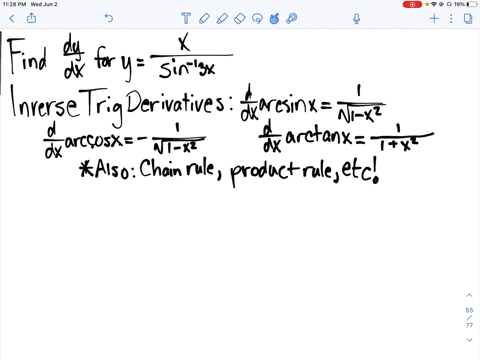 11:28 PM Wed Jun 2 19%
Find dy/dx for y = x/sin⁻¹3x
Inverse Trig Derivatives: d/dx arcsinx = 1/√1-x²
d/dx arccosx = - 1/√1-x² d/dx arctanx = 1/1+x²
*Also: Chain rule, product rule, etc!
55
/
77